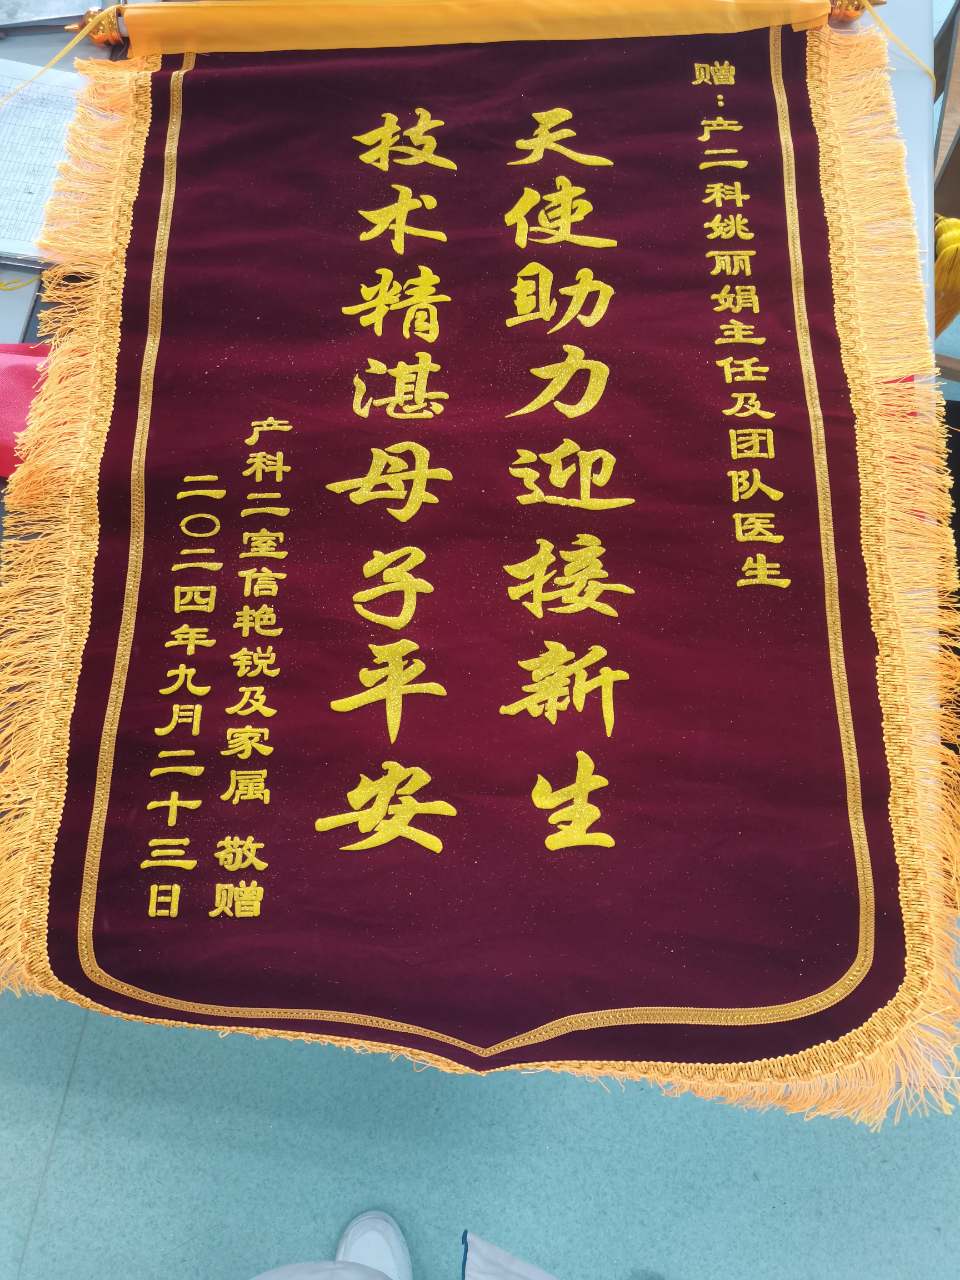 赠：产二科姚丽娟主任及团队医生
天使助力迎接新生
技术精湛母子平安
产科二室信艳锐及家属 敬赠
二〇二四年九月二十三日